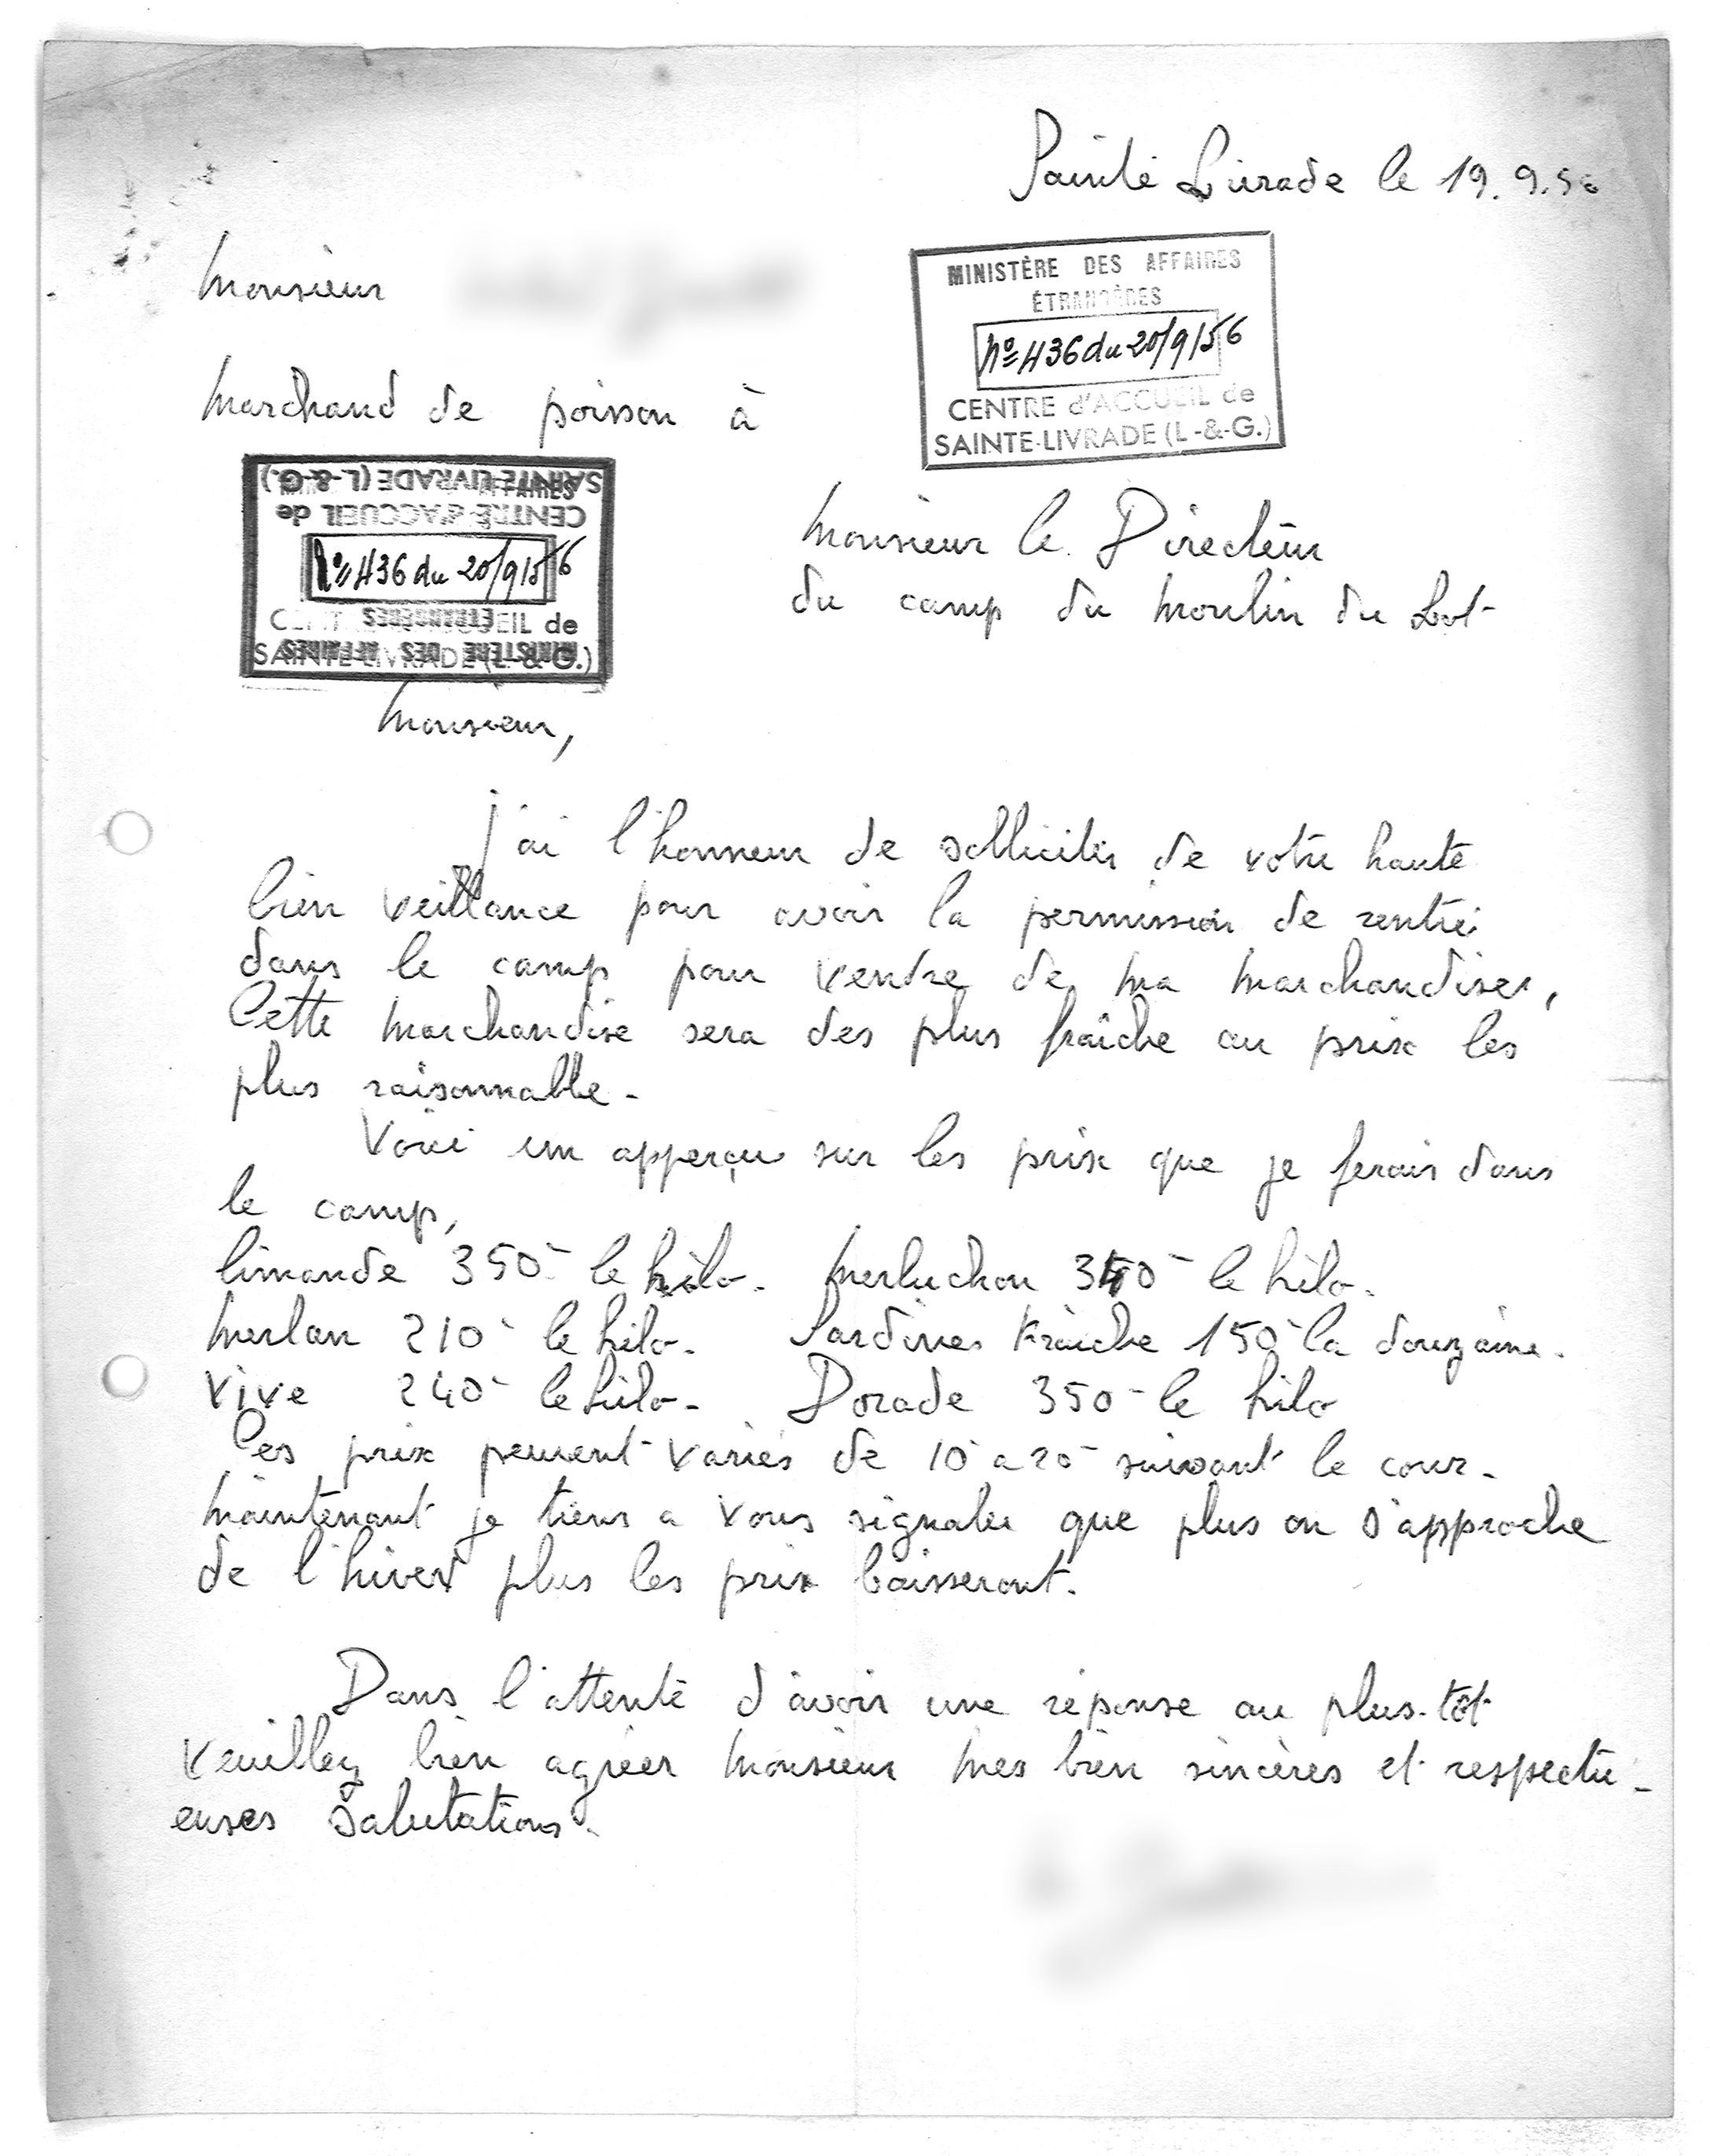 Sainte Livrade le 19.9.56
Monsieur
MINISTÈRE DES AFFAIRES
ÉTRANGÈRES
No 436 du 20/9/56
CENTRE d'ACCUEIL de
SAINTE-LIVRADE (L-&-G.)
Marchand de poisson à
SAINTE-LIVRADE (L-&-G.)
CENTRE d'ACCUEIL de
No 436 du 20/9/56
Monsieur le Directeur
du camp du Moulin du Lot
Monsieur,
J'ai l'honneur de solliciter de votre haute
bien veillance pour avoir la permission de rentrer
dans le camp pour vendre de ma marchandises,
Cette marchandise sera des plus fraîche au prix les
plus raisonnable.
Voici un apperçu sur les prix que je ferais dans
le camp,
limande 350- le kilo. Merluchon 340- le kilo.
Merlan 210- le kilo. Sardines fraiche 150- la douzaine.
Vive 240- le kilo. Dorade 350- le kilo
Ces prix peuvent variés de 10 a 20- suivant le cour.
Maintenant je tiens a vous signaler que plus on s'approche
de l'hiver plus les prix baisseront.
Dans l'attente d'avoir une réponse au plus-tôt
Veuillez bien agréer Monsieur mes bien sincères et respectu-
euses salutations.